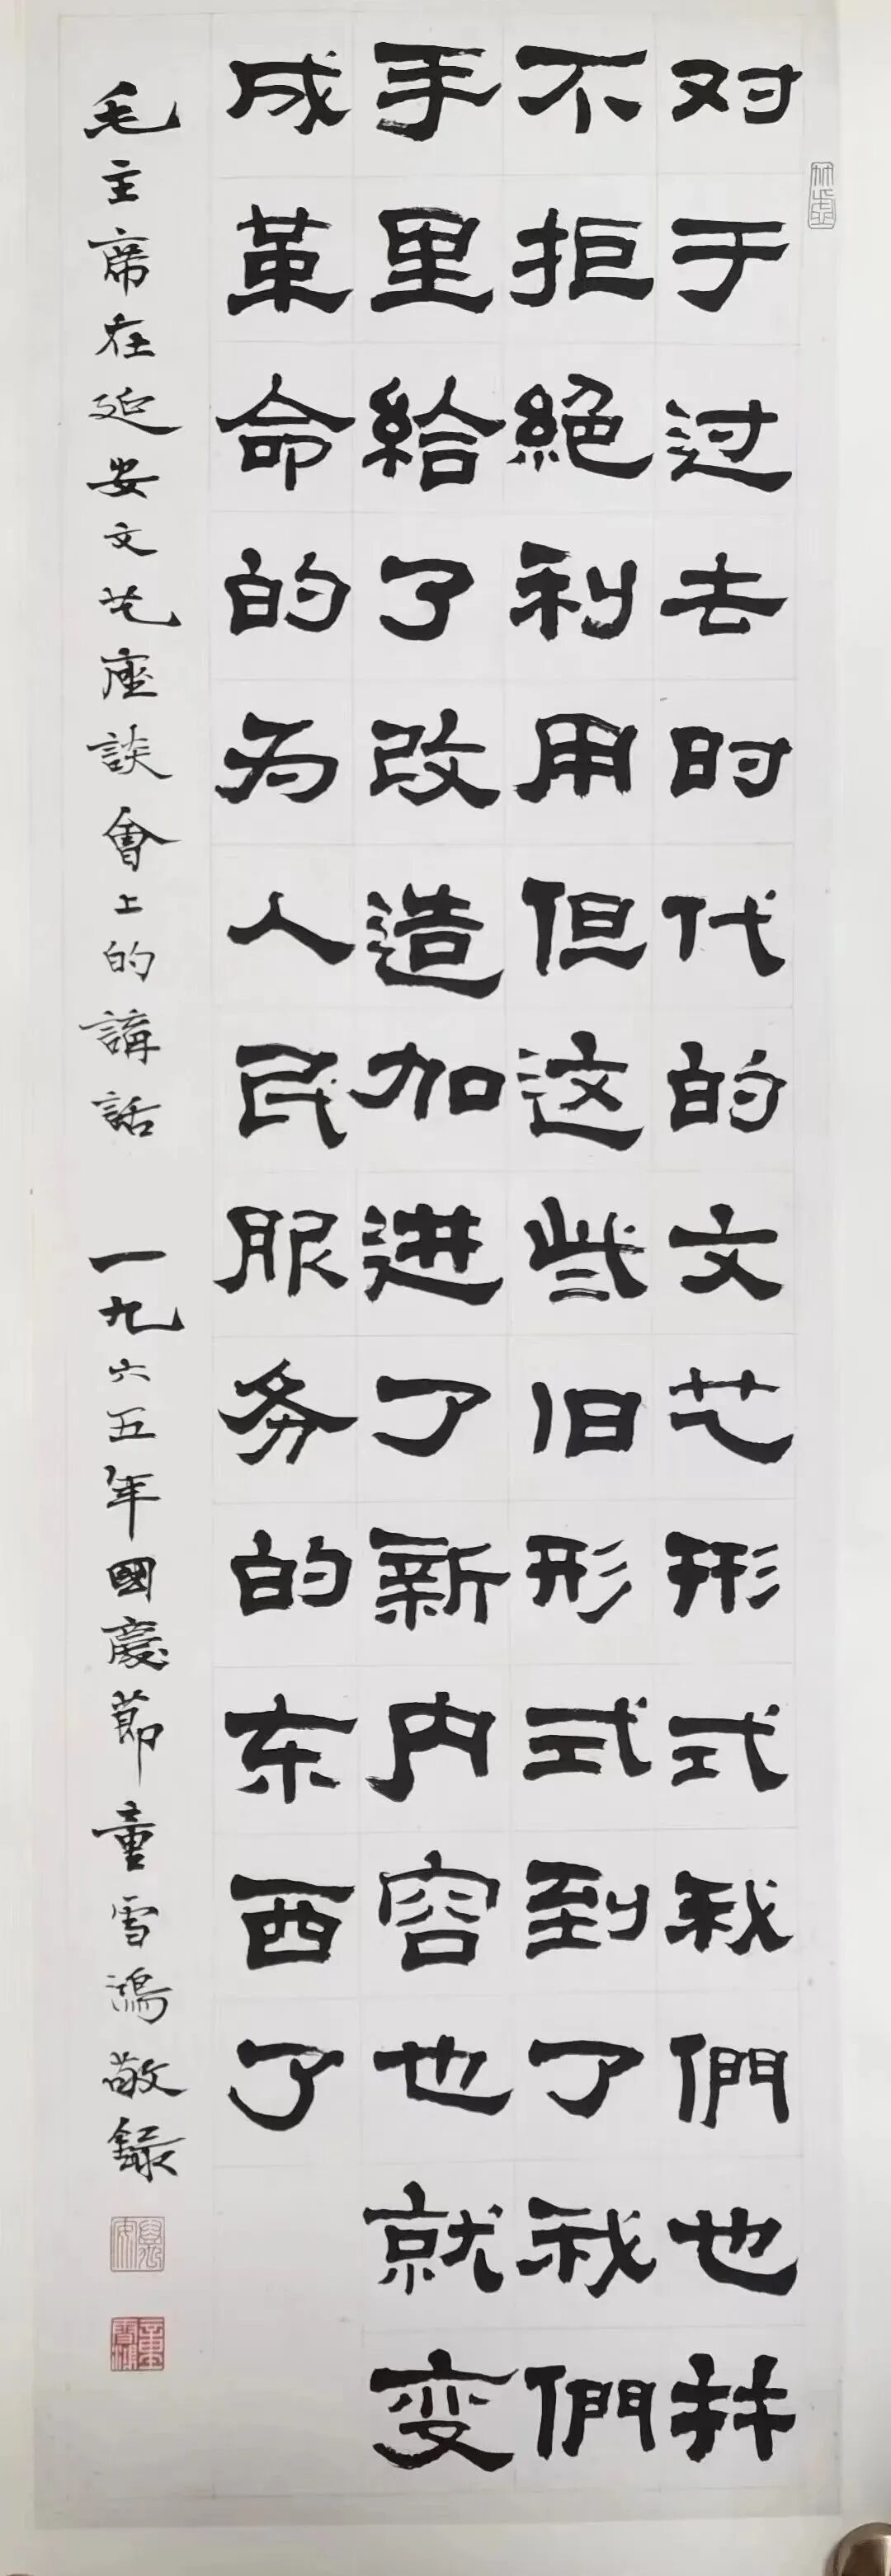 对于过去时代的文艺形式我們也并
不拒絕利用但这些旧形式到了我們
手里給了改造加进了新内容也就变
成革命的为人民服务的东西了
毛主席在延安文艺座談會上的講話 一九六五年國慶節童雪鴻敬錄